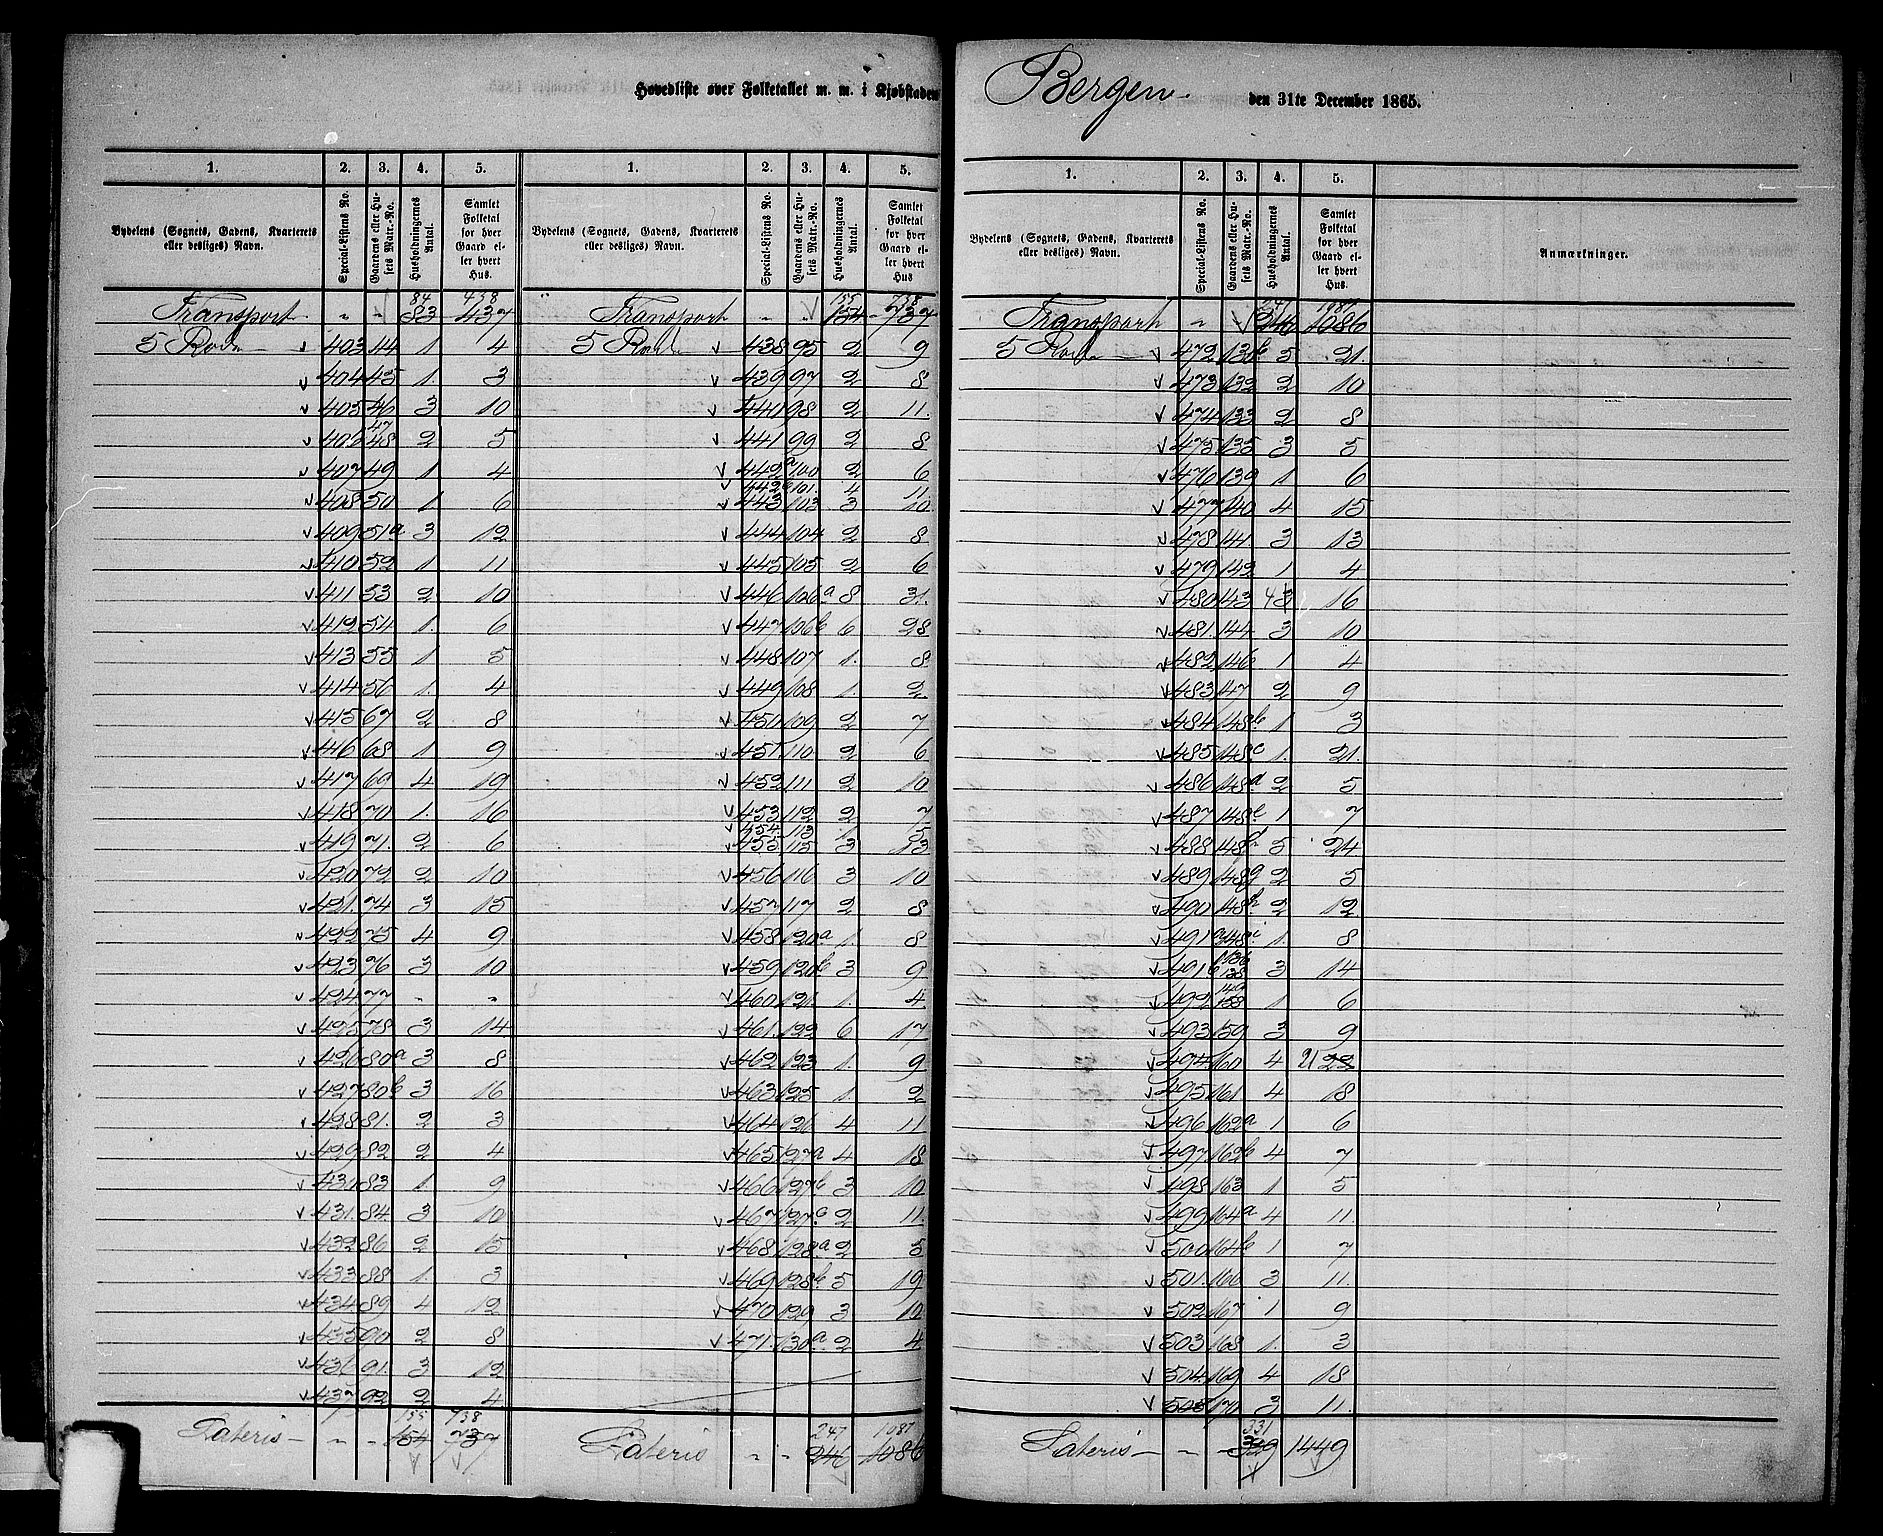 Hovedliste over Folketallet m. m. i Kjøbstaden Bergen den 31te December 1865.
1. 2. 3. 4. 5. 1. 2. 3. 4. 5.
Bydelens (Sognets, Gadens, Kvarterets eller desliges) Navn. Special-Listens No. Gaardens eller Husets Matr.-No. Husholdningernes Antal. Samlet Folketal for hver Gaard eller hvert Hus. Bydelens (Sognets, Gadens, Kvarterets eller desliges) Navn. Special-Listens No. Gaardens eller Husets Matr.-No. Husholdningernes Antal. Samlet Folketal for hver Gaard eller hvert Hus.
84 438
Transport " " 83 437
5 Rode 403 44 1 4
404 45 1. 3
405 46 3 10
406 47 48 2 5
407 49 1 4
408 50 1 6
409 51a 3 12
410 52 1 11
411 53 2 10
412 54 1. 6
413 55 1 5
414 56 1. 4
415 67 2 8
416 68 1 9
417 69 4 19
418 70 1. 16
419 71. 2 6
420 72 2 10
421. 74 3 15
422 75 4 9
423 76 3 10
424 77 " "
425 78 3 14
426 80a 3 8
427 80b 3 16
428 81. 2 3
429 82 2 4
430 83 1 9
431. 84 3 10
432 86 2 15
433 88 1. 3
434 89 4 12
435 90 2 8
436 91. 3 12
437 92 2 4
155 738
Lateris " " 154 737
155 738
Transport " " 154 737
5 Rode 438 95 2 9
439 97 2 8
440 98 2 11.
441 99 2 8
442a 100 2 6
442b 101. 4 11
443 103 3 10
444 104 2 8
445 105 2 6
446 106a 8 31.
447 106b 6 28
448 107 1. 8
449 108 1. 2
450 109 2 7
451 110 2 6
452 111 2 10
453 112 2 7
454 113 1 5
455 115 3 13
456 116 3 10
457 117 2 8
458 120a 1. 8
459 120b 3 9
460 121. 1. 4
461. 122 6 17
462 123 1. 9
463 125 1. 2
464 126 4 11
465 127a 4 18
466 127b 3 10
467 127c 2 11.
468 128a 2 5
469 128b 5 19
470 129 3 12
471. 130a 2 4
247 1087
Lateris " " 246 1086
1. 2. 3. 4. 5.
Bydelens (Sognets, Gadens, Kvarterets eller desliges) Navn. Special-Listens No. Gaardens eller Husets Matr.-No. Husholdningernes Antal. Samlet Folketal for hver Gaard eller hvert Hus. Anmærkninger.
247 1087
Transport " " 246 1086
5 Rode 472 130b 5 21.
473 132 2 10
474 133 2 8
475 135 3 5
476 139 1 6
477 140 4 15
478 141. 3 13
479 142 1 4
480 143 4 3 16
481. 144 3 10
482 146 1 4
483 147 2 9
484 148b 1 3
485 148c 1. 21.
486 148d 2 5
487 148e 1 7
488 148f 5 24
489 148g 2 5
490 148h 2 12
491a 148i 1. 8
491b 136 138 3 14
492 149 158 1 6
493 159 3 9
494 160 4 21 22
495 161 4 18
496 162a 1 6
497 162b 4 7
498 163 1 5
499 164a 4 11.
500 164b 1 7
501. 166 3 11.
502 167 1 9
503 168 1. 3
504. 169 4 18
505 170 3 11.
331
Lateris " " 329 1449